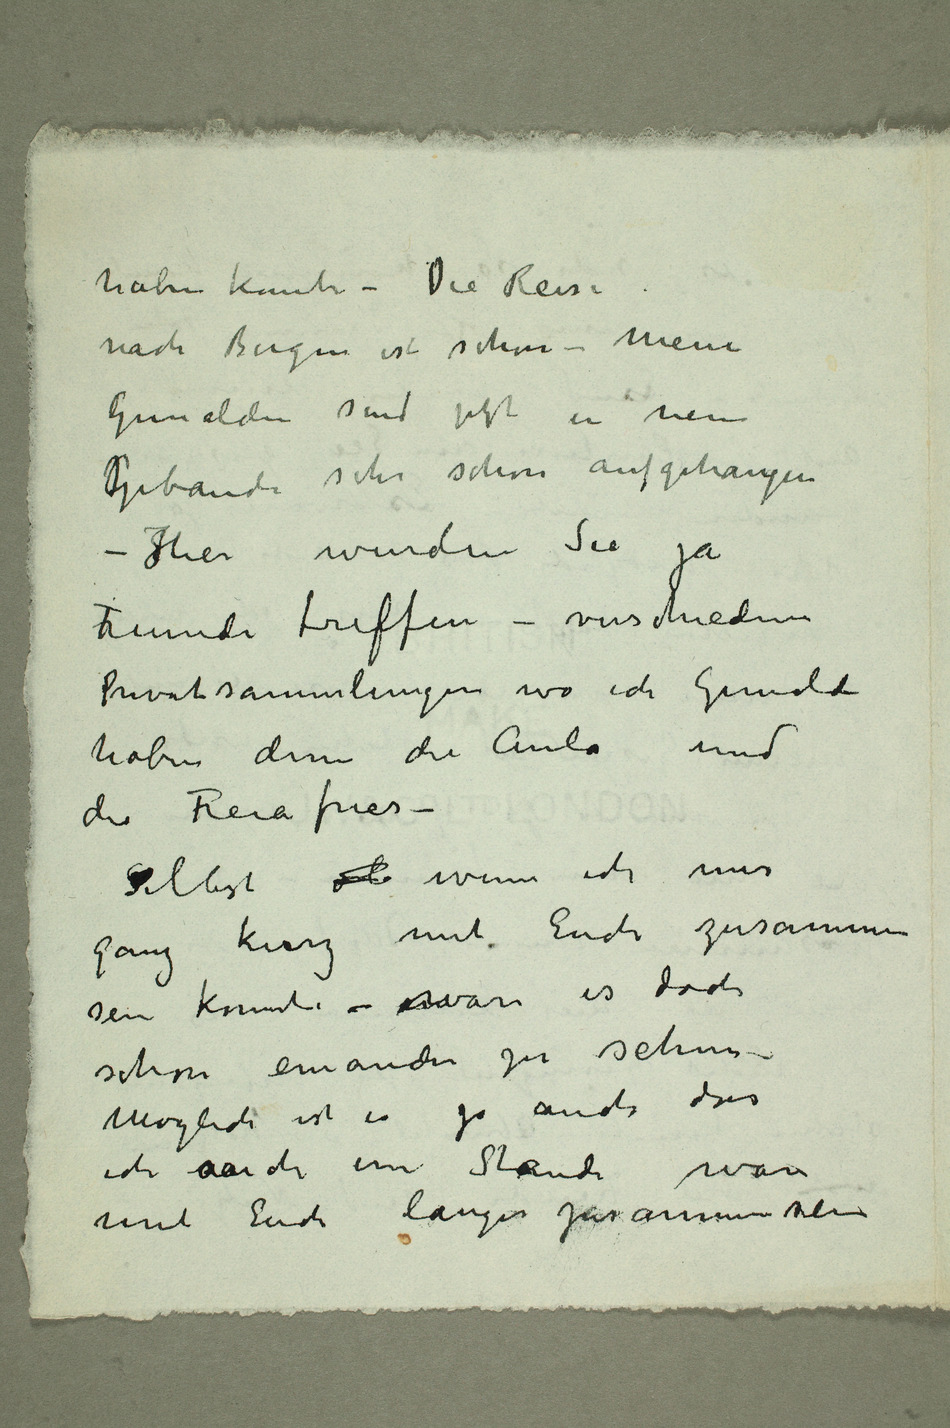 haben könnte – Die Reise
nach Bergen ist schön – Meine
Gemälden sind jetzt in neuem
Gebäude sehr schön aufgehangen
– Hier würden Sie ja
Freunde treffen – verschiedene
Privatsammlungen wo ich Gemälde
haben denn die Aula und
die Freiafries –
Selbst ob wenn ich nur
ganz kurz mit Euch zusammen
sein könnte – wäre es doch
schön einander zu sehen –
Möglich ist es ja auch das
ich auch im Stande wäre
mit Euch länger zusammensein